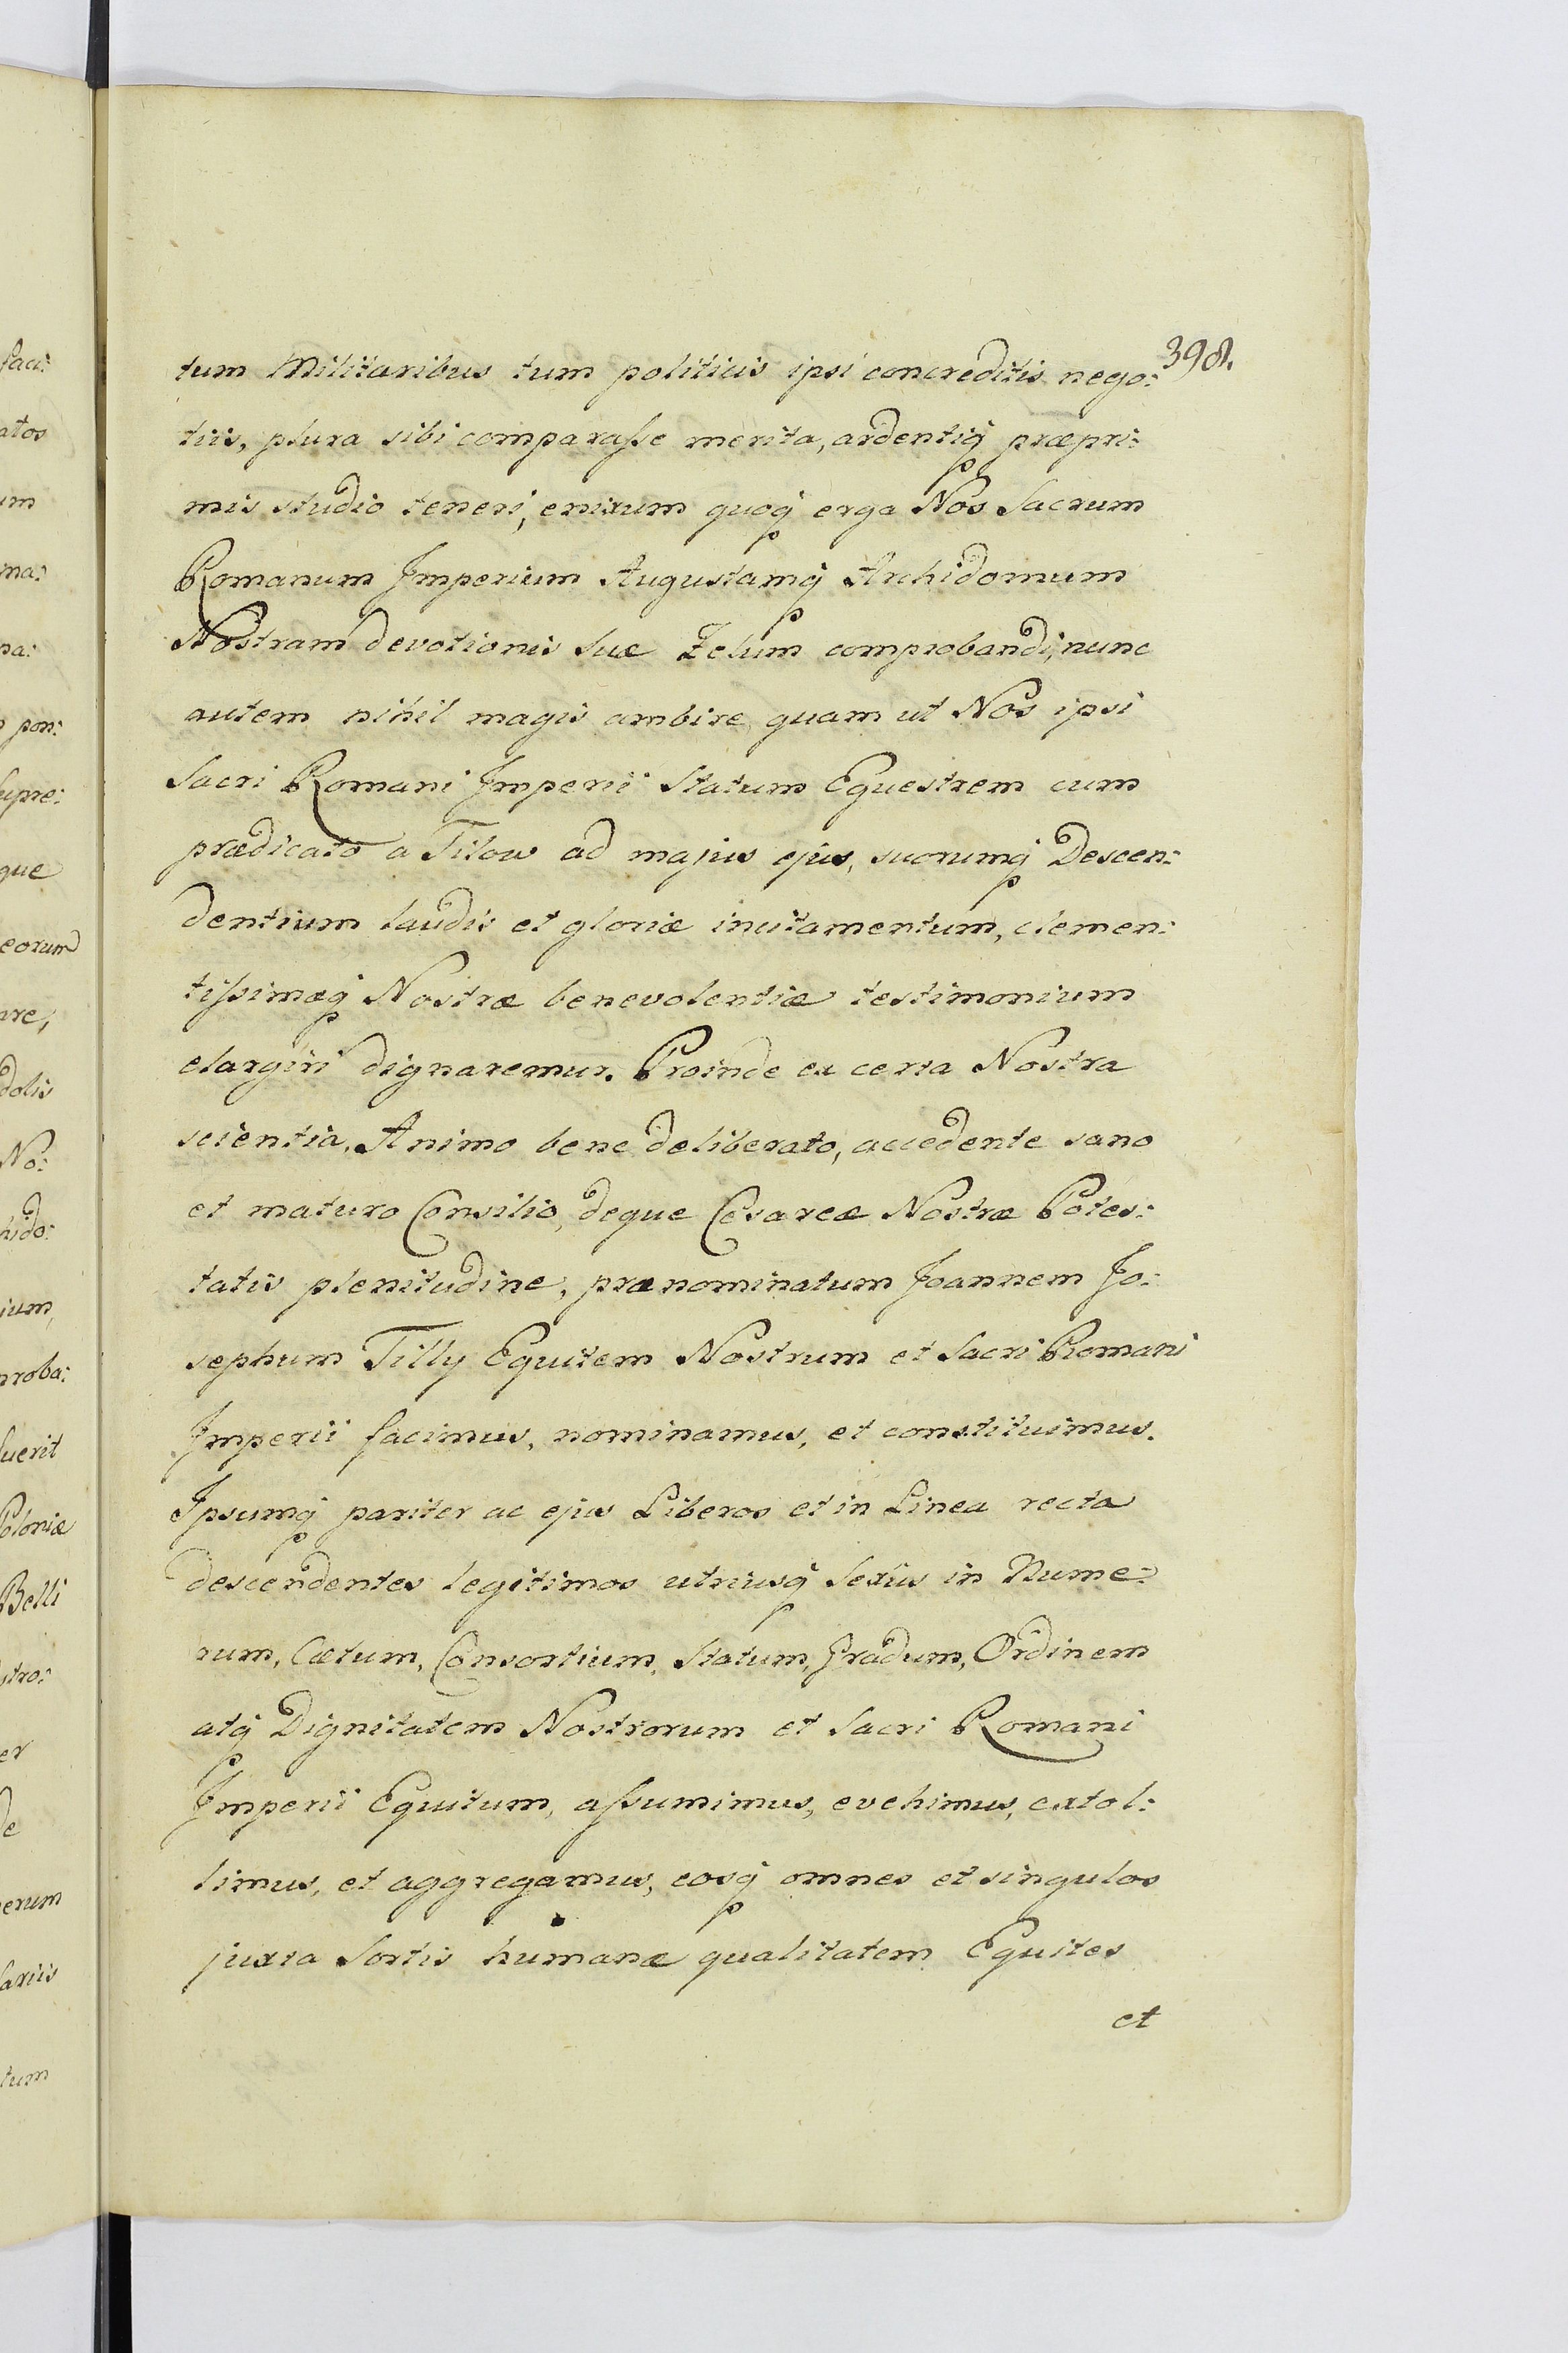 398.
tum Militaribus tum politicis ipsi concreditis nego:
tiis, plura sibi comparaſse merita, ardentiq́ præpri:
mis studio teneri, enixum quoq́ erga Nos Sacrum
Romanum Imperium Augustamq́ Archidomum
Nostram devotionis suæ Zelum comprobandi, nunc
autem nihil magis ambire, quam ut Nos ipsi
Sacri Romani Imperii Statum Equestrem cum
prædicato a Tilow ad majus ejus, suorumq́ Descen:
dentium laudis et gloriæ incitamentum, clemen:
tiſsimæq́ Nostræ benevolentiæ testimonium
elargiri dignaremur. Proinde ex certa Nostra
scientia, Animo bene deliberato, accedente sano
et maturo Consilio, deque Cesareæ Nostræ Potes:
tatis plenitudine, prænominatum Joannem Jo:
sephum Tilly Equitem Nostrum et Sacri Romani
Imperii facimus, nominamus, et constituimus.
Ipsumq́ pariter ac ejus Liberos et in Linea recta
descendentes legitimos utriusq́ Sexus in Nume:
rum, Cætum, Consortium, Statum, Gradum, Ordinem
atq́ Dignitatem Nostrorum et Sacri Romani
Imperii Equitum, aſsumimus, evehimus, extol:
limus, et aggregamus, eosq́ omnes et singulos
juxta Sortis humanæ qualitatem Equites
et
faci:
atos
um
ma:
na:
pon:
upre:
que
eorum
are,
dolis
No:
hido:
ium,
proba:
fuerit
Poloniæ
Belli
stro:
er
de
erum
lariis
tum